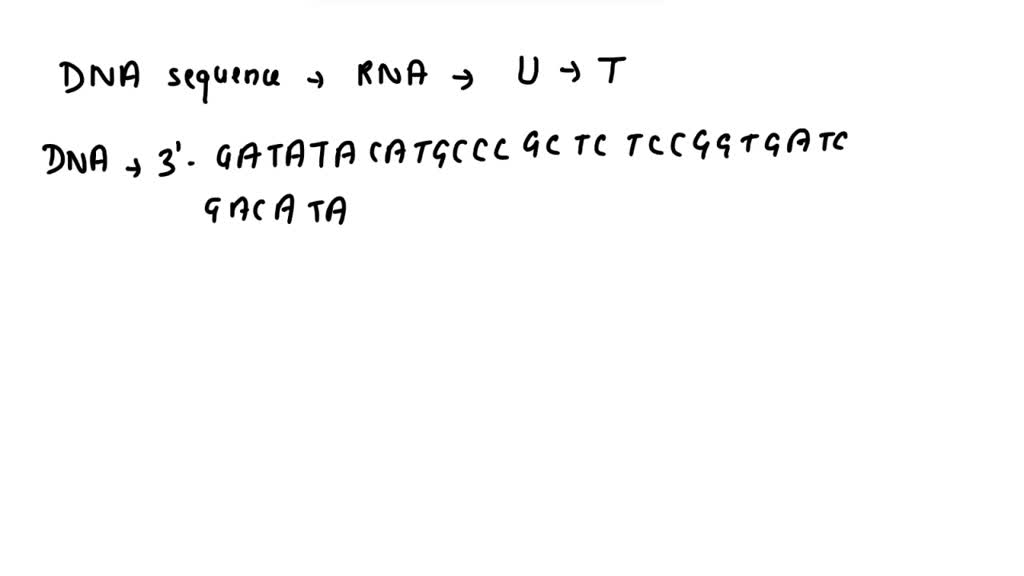 DNA sequence → RNA → U → T
DNA → 3'- GATATA CATGCCC GC TC TCCGGTGATC
GACATA